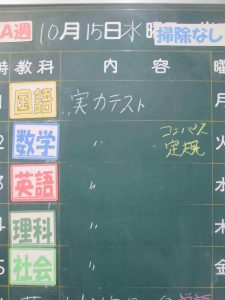 A週 10月15日水曜 掃除なし
時 教科 内容 曜
1 国語 実力テスト 月
2 数学 〃 コンパス 火
定規
3 英語 〃 水
4 理科 〃 木
5 社会 〃 金